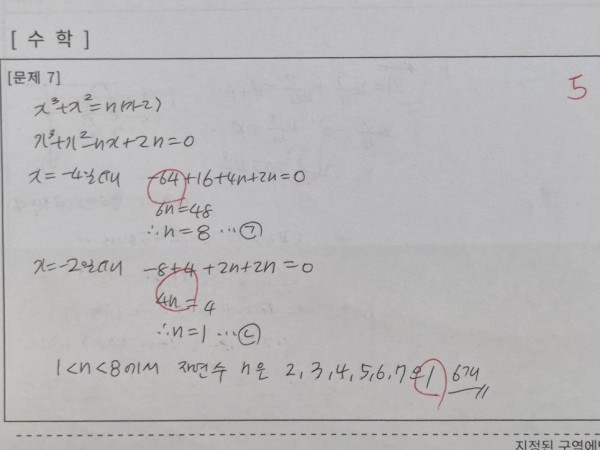 [ 수 학 ]
[문제 7]
5
x³+x²=n(x-2)
x³+x²-nx+2n=0
x=-4일때 -64+16+4n+2n=0
6n=48
∴n=8 …㉠
x=-2일때 -8+4+2n+2n=0
4n=4
∴n=1 …㉡
1<n<8에서 자연수 n은 2,3,4,5,6,7으로 6개
지정된 구역에만